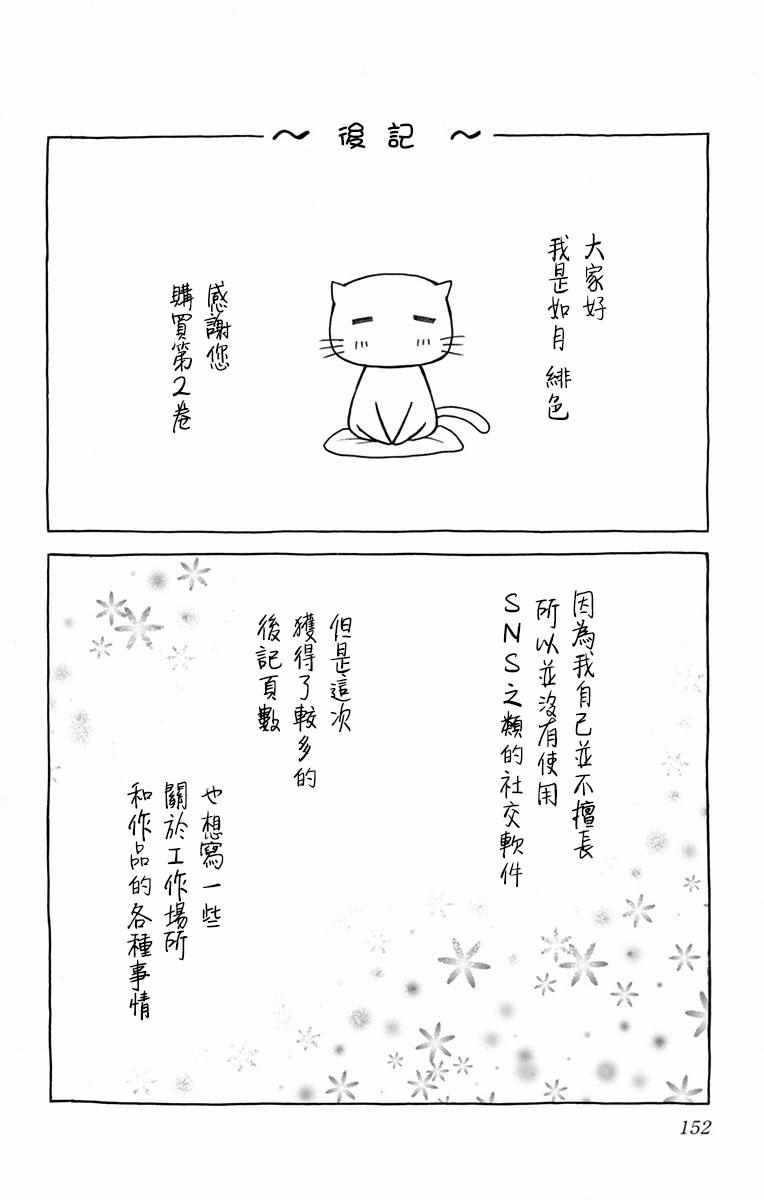 ～後記～
大家好
我是如月 緋色
感謝您
購買第2卷
因為我自己並不擅長
所以並沒有使用
SNS之類的社交軟件
但是這次
獲得了較多的
後記頁數
也想寫一些
關於工作場所
和作品的各種事情
152